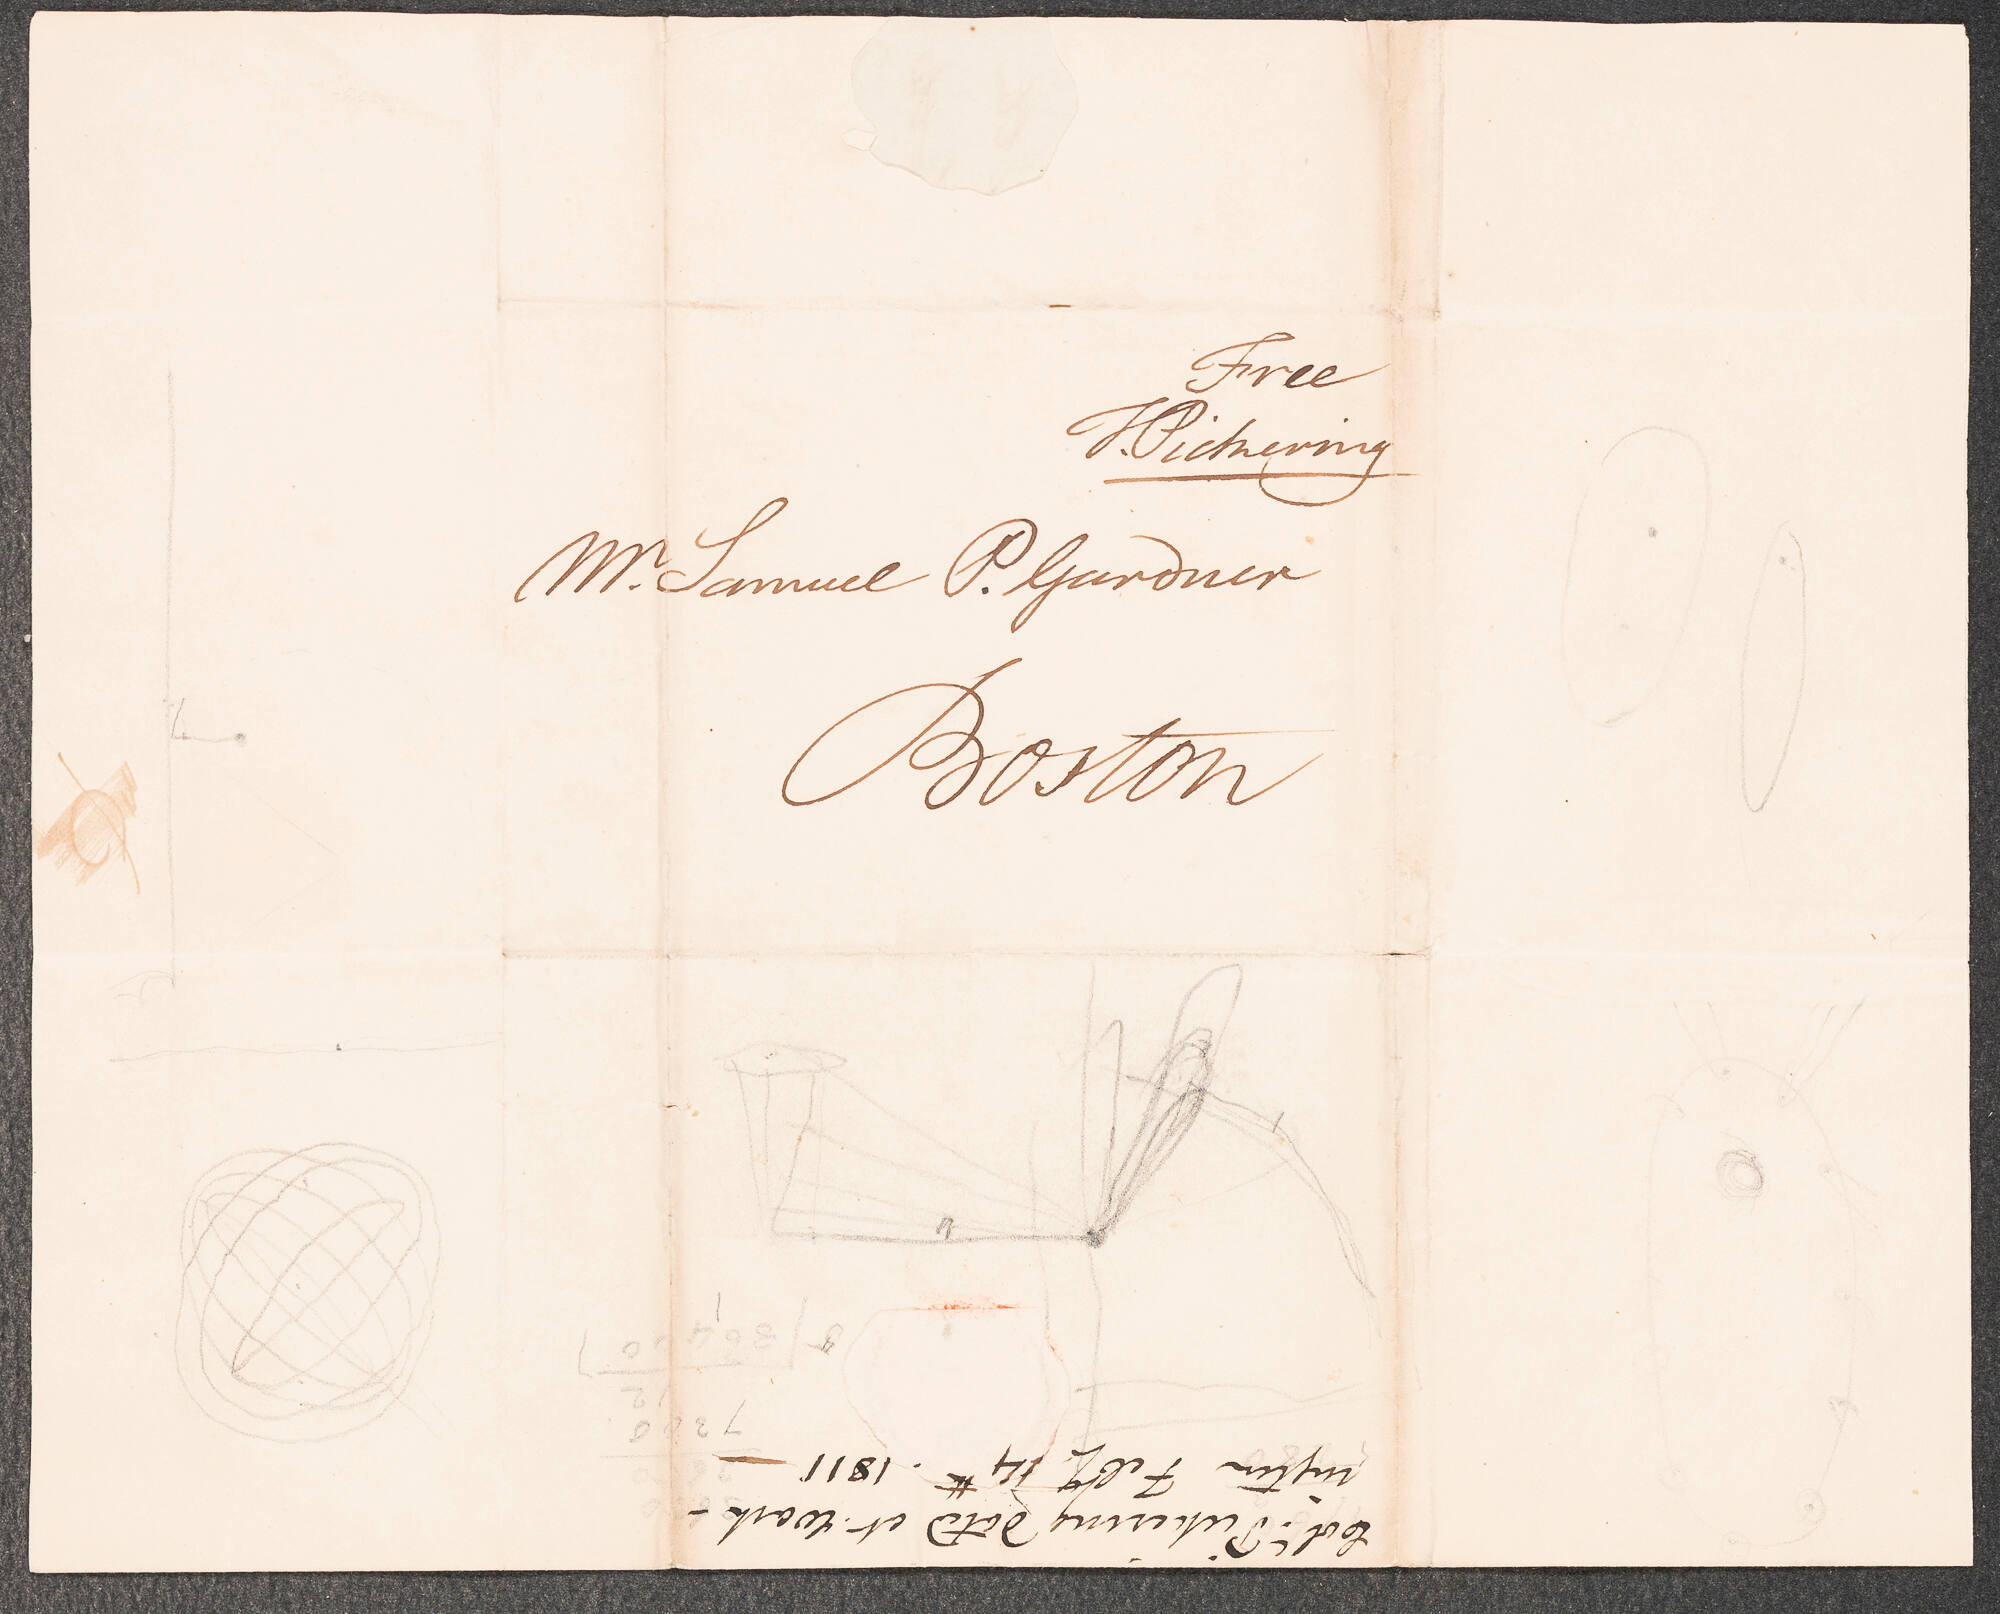 Free
T. Pickering
Mr. Samuel P. Gardner
Boston
Col. Pickering dated at Wash-
ington Feby. 14th. 1811
8
7200